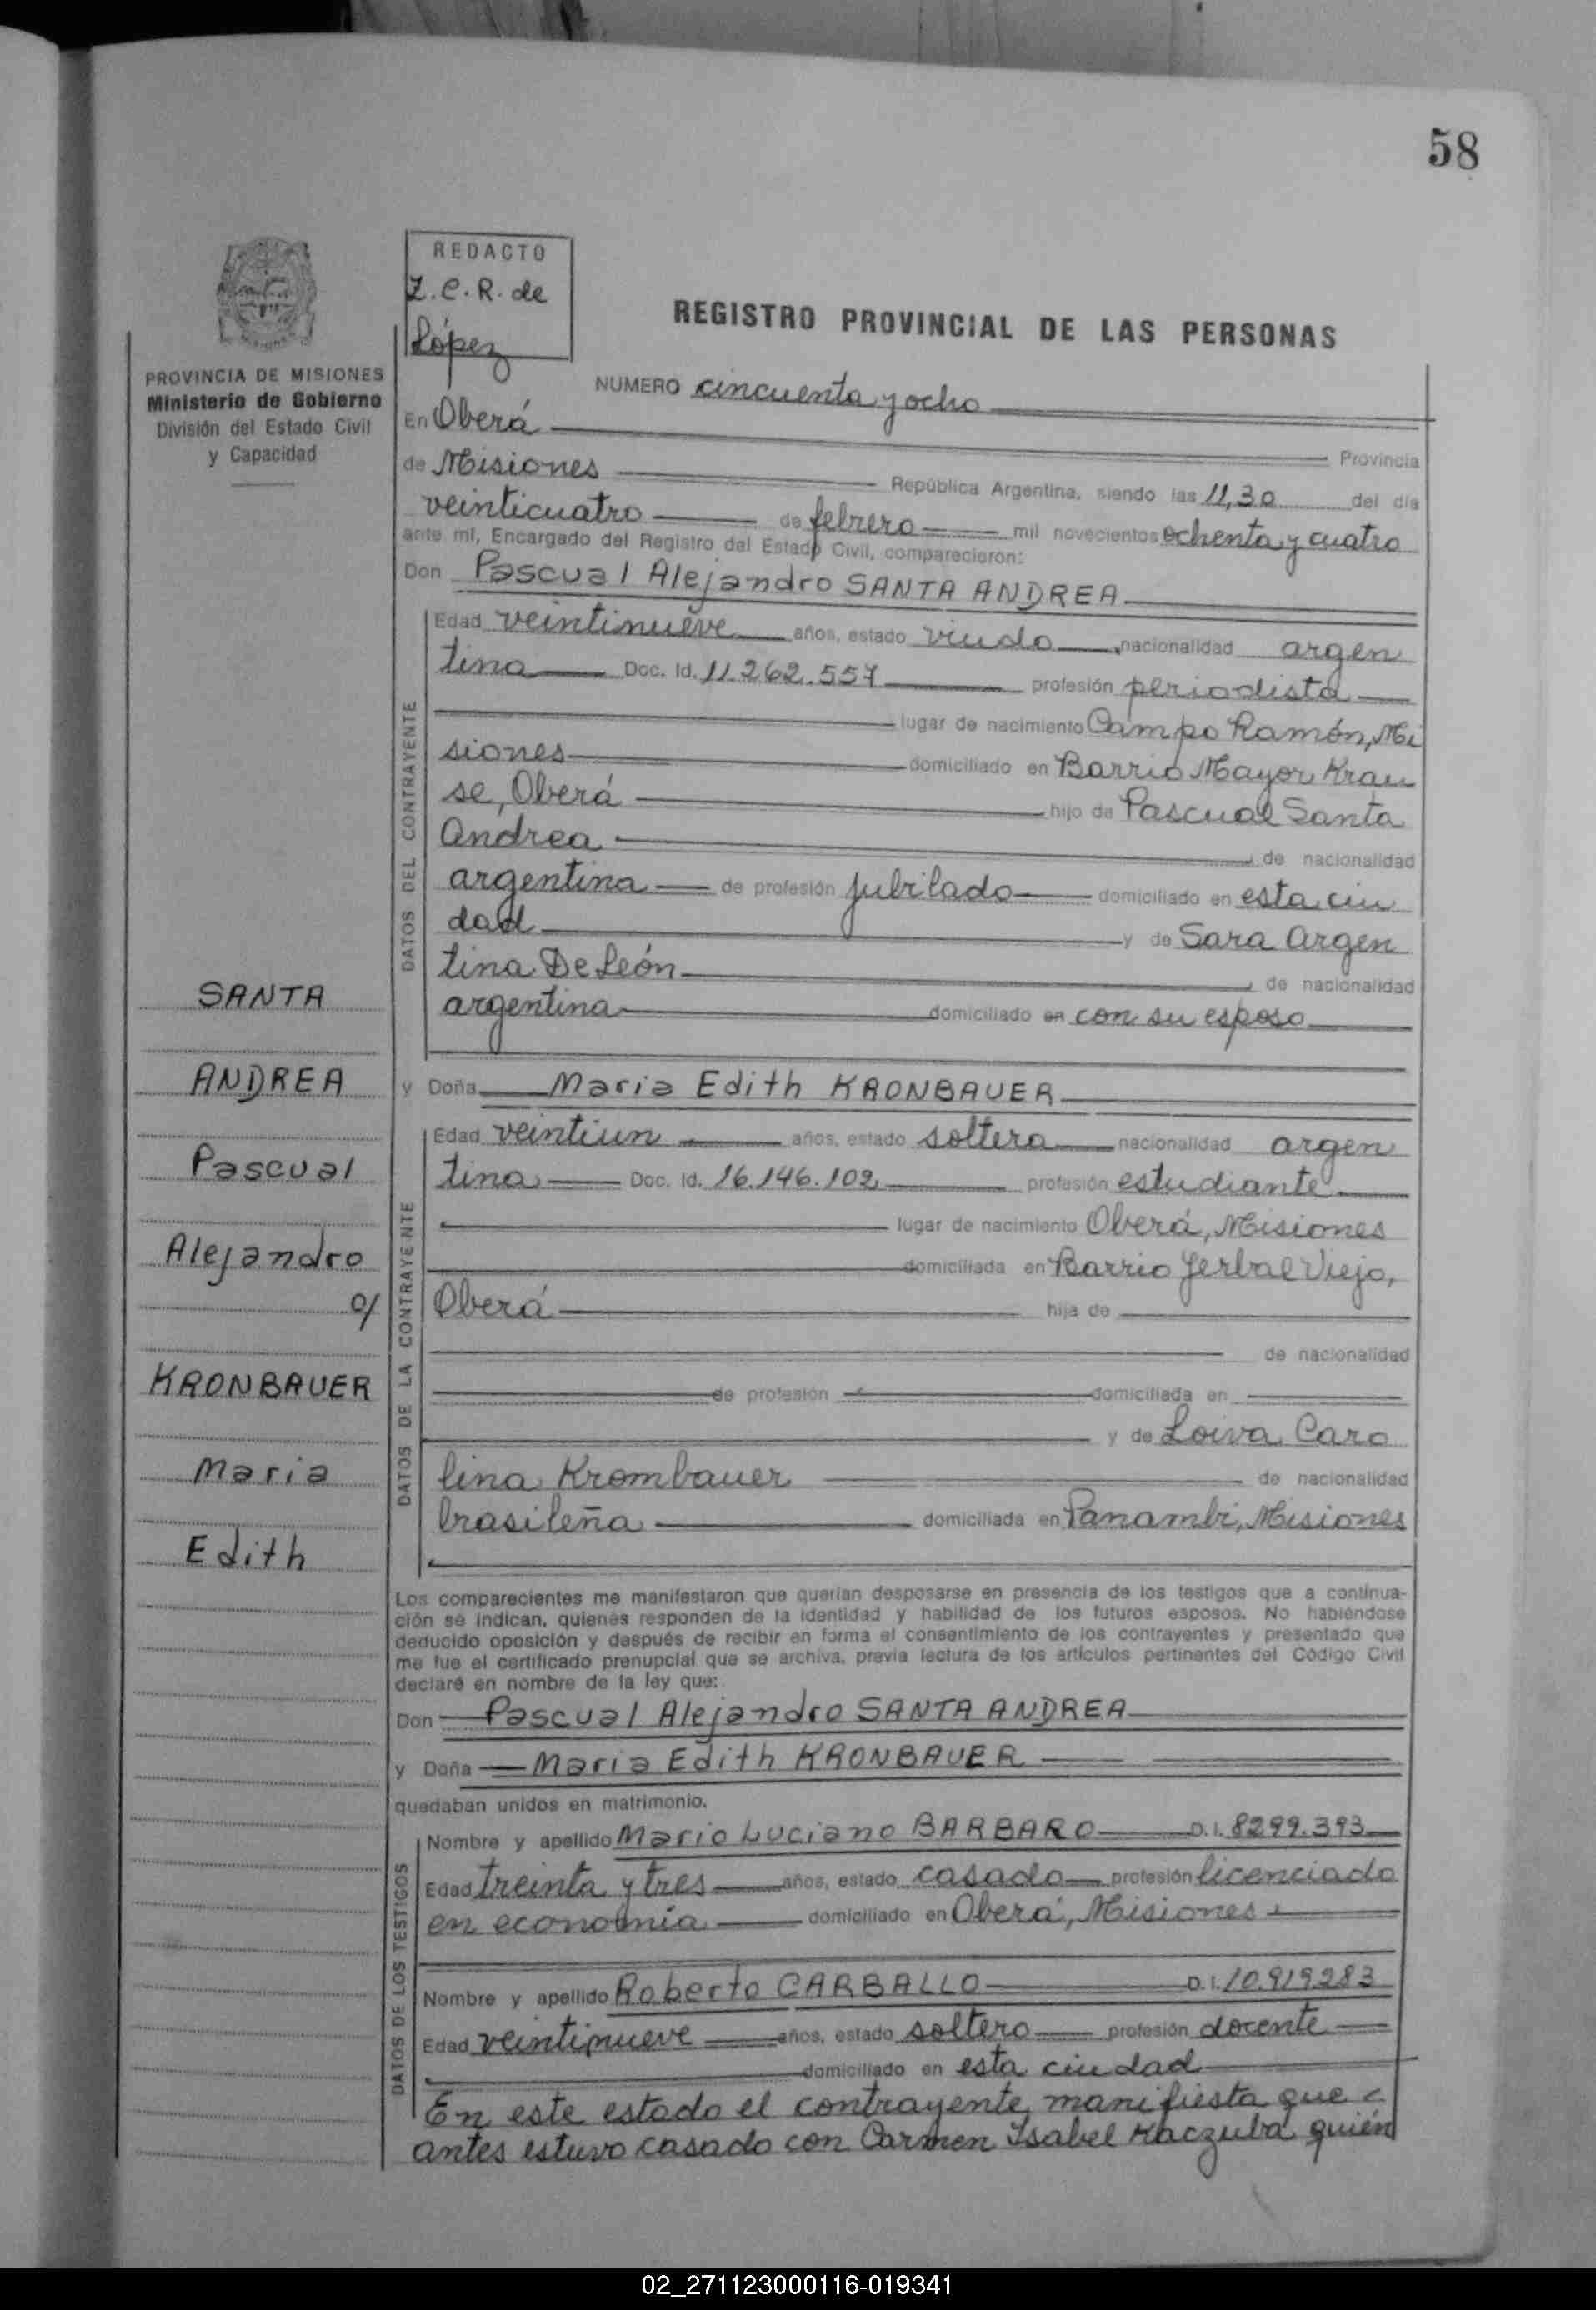 58
REDACTO
Z.C.R. de
López
REGISTRO PROVINCIAL DE LAS PERSONAS
PROVINCIA DE MISIONES
Ministerio de Gobierno
División del Estado Civil
y Capacidad
NUMERO cincuenta y ocho
En Oberá
de Misiones Provincia
República Argentina, siendo las 11,30 del día
veinticuatro de febrero mil novecientos ochenta y cuatro
ante mí, Encargado del Registro del Estado Civil, comparecieron:
Don Pascual Alejandro SANTA ANDREA
DATOS DEL CONTRAYENTE
Edad veintinueve años, estado viudo, nacionalidad argen
tina Doc. Id. 11.262.557 profesión periodista
lugar de nacimiento Campo Ramón, Mi
siones domiciliado en Barrio Mayor Krau
se, Oberá hijo de Pascual Santa
Andrea de nacionalidad
argentina de profesión jubilado domiciliado en esta ciu
dad y de Sara Argen
tina De León de nacionalidad
argentina domiciliado en con su esposo
SANTA
ANDREA
Pascual
Alejandro
c/
KRONBAUER
Maria
Edith
y Doña Maria Edith KRONBAUER
DATOS DE LA CONTRAYENTE
Edad veintiun años, estado soltera nacionalidad argen
tina Doc. Id. 16.146.102 profesión estudiante
lugar de nacimiento Oberá, Misiones
domiciliada en Barrio Yerbal Viejo,
Oberá hija de
de nacionalidad
de profesión domiciliada en
y de Loiva Caro
lina Krombauer de nacionalidad
brasileña domiciliada en Panambi, Misiones
Los comparecientes me manifestaron que querían desposarse en presencia de los testigos que a continua-
ción se indican, quienes responden de la identidad y habilidad de los futuros esposos. No habiéndose
deducido oposición y después de recibir en forma el consentimiento de los contrayentes y presentado que
me fue el certificado prenupcial que se archiva, previa lectura de los artículos pertinentes del Código Civil
declaré en nombre de la ley que:
Don Pascual Alejandro SANTA ANDREA
y Doña Maria Edith KRONBAUER
quedaban unidos en matrimonio.
DATOS DE LOS TESTIGOS
Nombre y apellido Mario Luciano BARBARO D.I. 8299.393
Edad treinta y tres años, estado casado profesión licenciado
en economía domiciliado en Oberá, Misiones
Nombre y apellido Roberto CARBALLO D.I. 10.919283
Edad veintinueve años, estado soltero profesión docente
domiciliado en esta ciudad
En este estado el contrayente manifiesta que
antes estuvo casado con Carmen Isabel Kaczuba quién
02_271123000116-019341